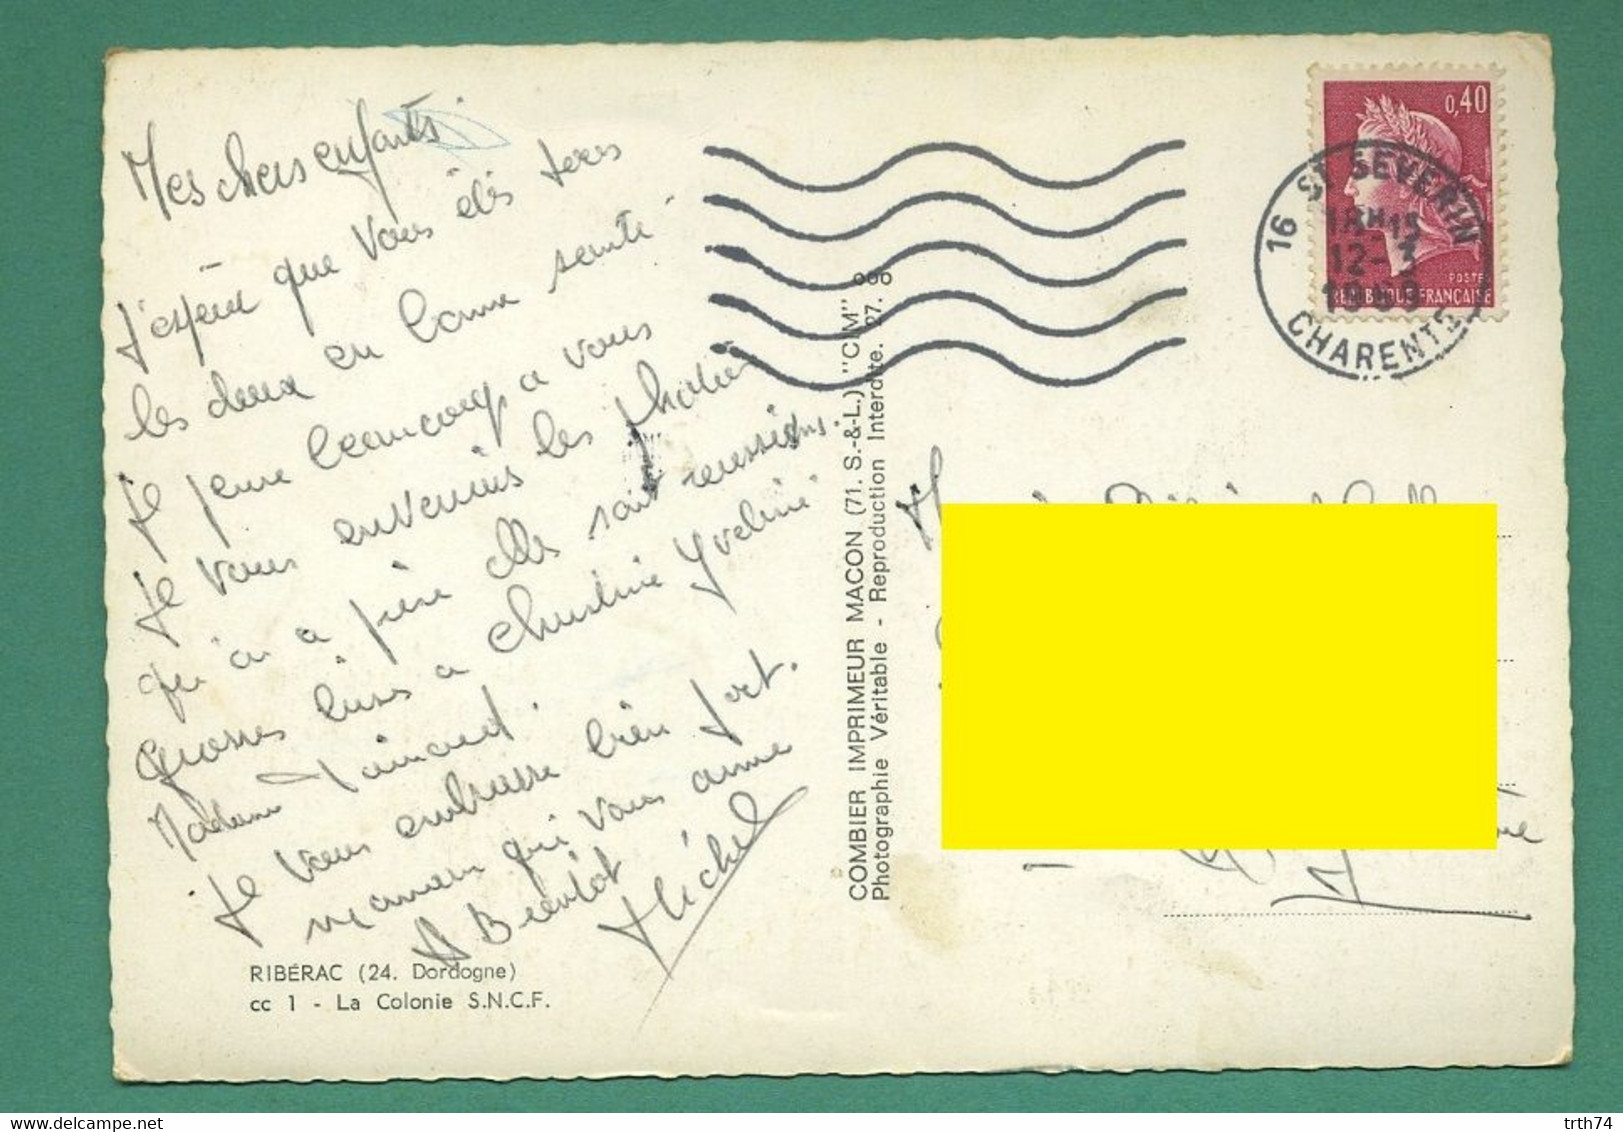 Mes chers enfants
J'espère que vous êtes tous
les deux en bonne santé
Je pense beaucoup a vous
Je vous envenrais les photos
qu'on a elles sont reussies.
Grosses bises a Christine Yveline
Madame
Je vous embrasse bien fort.
maman qui vous aime
A Bientôt
Michel
RIBÉRAC (24. Dordogne)
cc 1 - La Colonie S.N.C.F.
COMBIER IMPRIMEUR MACON (71. S.-&-L.) "CIM"
Photographie Véritable - Reproduction Interdite. 27. ooo
0,40
POSTES
REPUBLIQUE FRANÇAISE
16 ST SEVERIN
18H15
12-3
1969
CHARENTE
www.delcampe.net
trth74